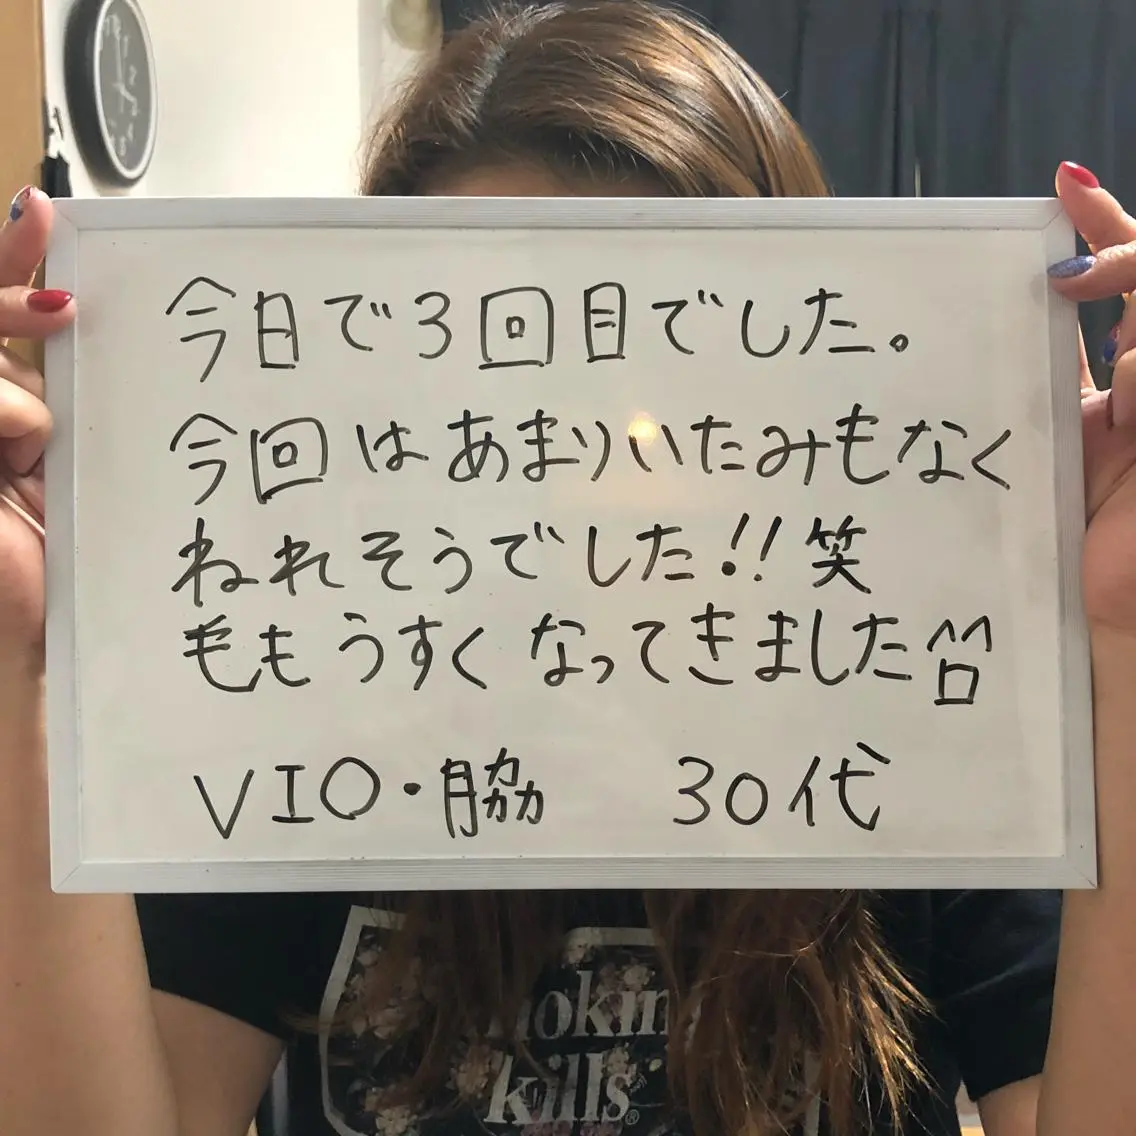 今日で3回目でした。
今回はあまりいたみもなく
ねれそうでした!!笑
毛もうすくなってきました^^
VIO・脇 30代
kills